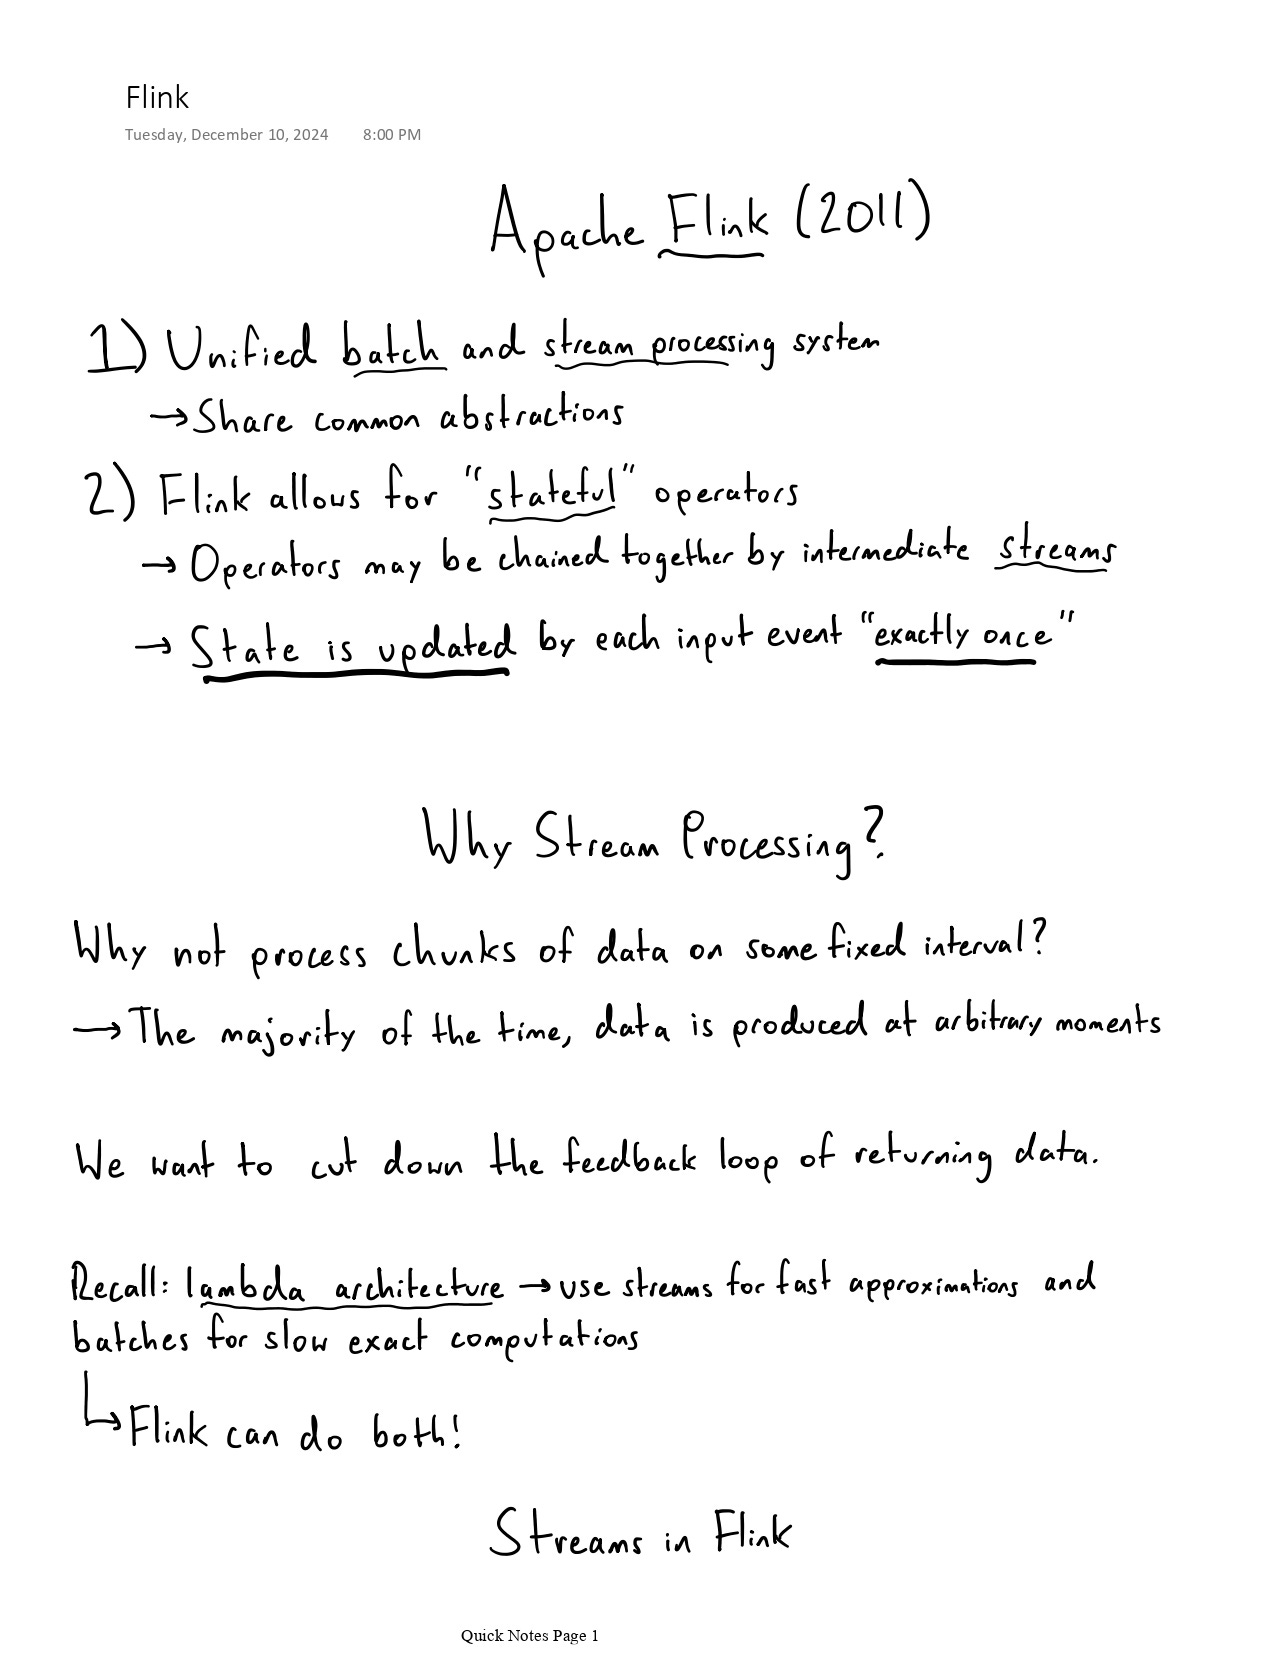 Flink
Tuesday, December 10, 2024 8:00 PM
Apache Flink (2011)
1) Unified batch and stream processing system
→ Share common abstractions
2) Flink allows for "stateful" operators
→ Operators may be chained together by intermediate streams
→ State is updated by each input event "exactly once"
Why Stream Processing?
Why not process chunks of data on some fixed interval?
→ The majority of the time, data is produced at arbitrary moments
We want to cut down the feedback loop of returning data.
Recall: lambda architecture → use streams for fast approximations and
batches for slow exact computations
↳ Flink can do both!
Streams in Flink
Quick Notes Page 1